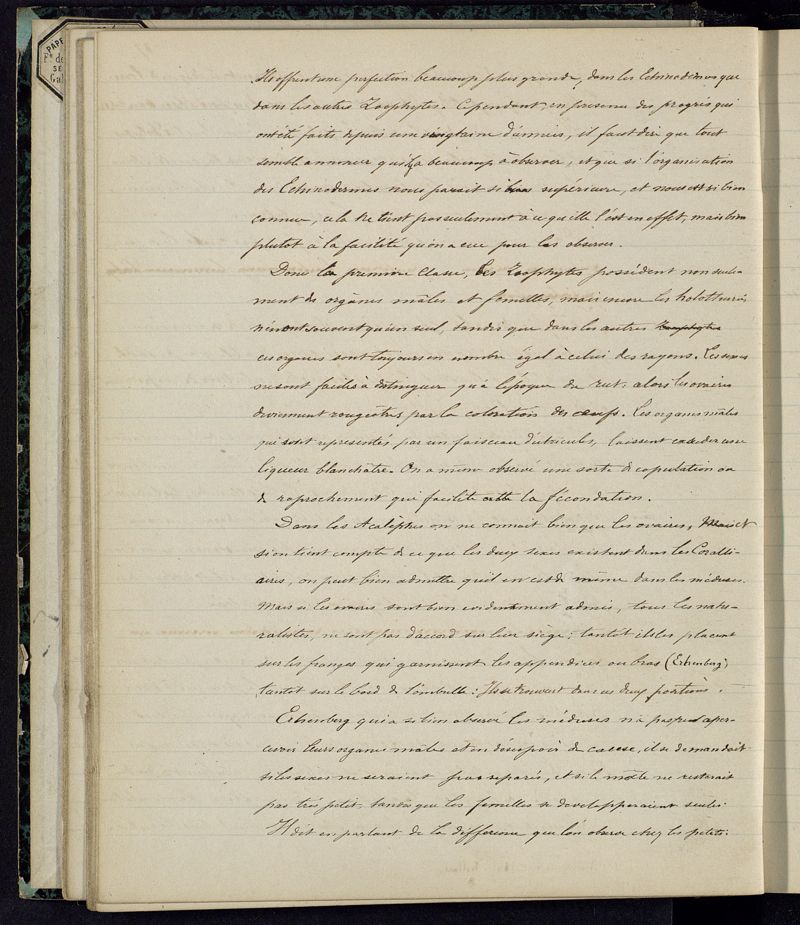 PAPE
Fe de
SE
Gal
Ils offrent une perfection beaucoup plus grande, dans les Echinodermes que
dans les autres Zoophytes. Cependant, en presence des progrès qui
ont été faits depuis une vingtaine d'années, il faut dire que tout
semble annoncer qu'il y a beaucoup à observer, et que si l'organisation
des Echinodermes nous parait si supérieure, et nous est si bien
connue, cela ne tient pas seulement à ce qu'elle l'est en effet, mais bien
plutot à la facilité qu'on a eue pour les observer.
Dans la première classe, les Zoophytes possèdent non seule-
ment des organes mâles et femelles, mais encore les holothuries
n'en ont souvent qu'un seul, tandis que dans les autres Zoophytes
ces organes sont toujours en nombre égal à celui des rayons. Les sexes
ne sont faciles à distinguer qu'à l'époque du rut, alors les ovaires
deviennent rougeâtres par la coloration des oeufs. Les organes mâles
qui sont representés par un faisceau d'utricules, laissent exsuder une
liqueur blanchâtre. On a même observé une sorte de copulation ou
de raprochement qui facilite cette la fécondation.
Dans les Acalèphes on ne connait bien que les ovaires, Mais et
si on tient compte de ce que les deux sexes existent dans les Coralli-
aires, on peut bien admettre qu'il en est de même dans les méduses.
Mais si les ovaires sont bien evidemment admis, tous les natu-
ralistes, ne sont pas d'accord sur leur siège; tantôt ils les placent
sur les franges qui garnissent les appendices ou bras (Erhenberg)
tantot sur le bord de l'ombelle: Ils se trouvent dans ces deux portions.
Erhenberg qui a si bien observé les méduses n'a pas pu aper-
cevoir leurs organes mâles et en désespoir de cause, il se demandait
si les sexes ne seraient pas separés, et si le mâle ne resterait
pas très petit, tandis que les femelles se developperaient seules:
Il dit en parlant de la difference que l'on observe chez les petits: